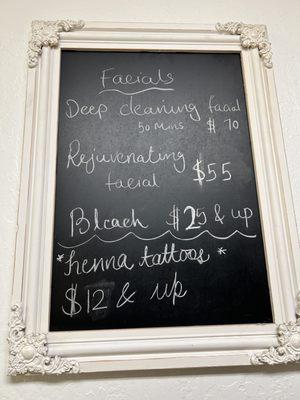 Facials
Deep cleaning facial
50 mins $70
Rejuvenating
facial $55
Bleach $25 & up
*henna tattoos*
$12 & up